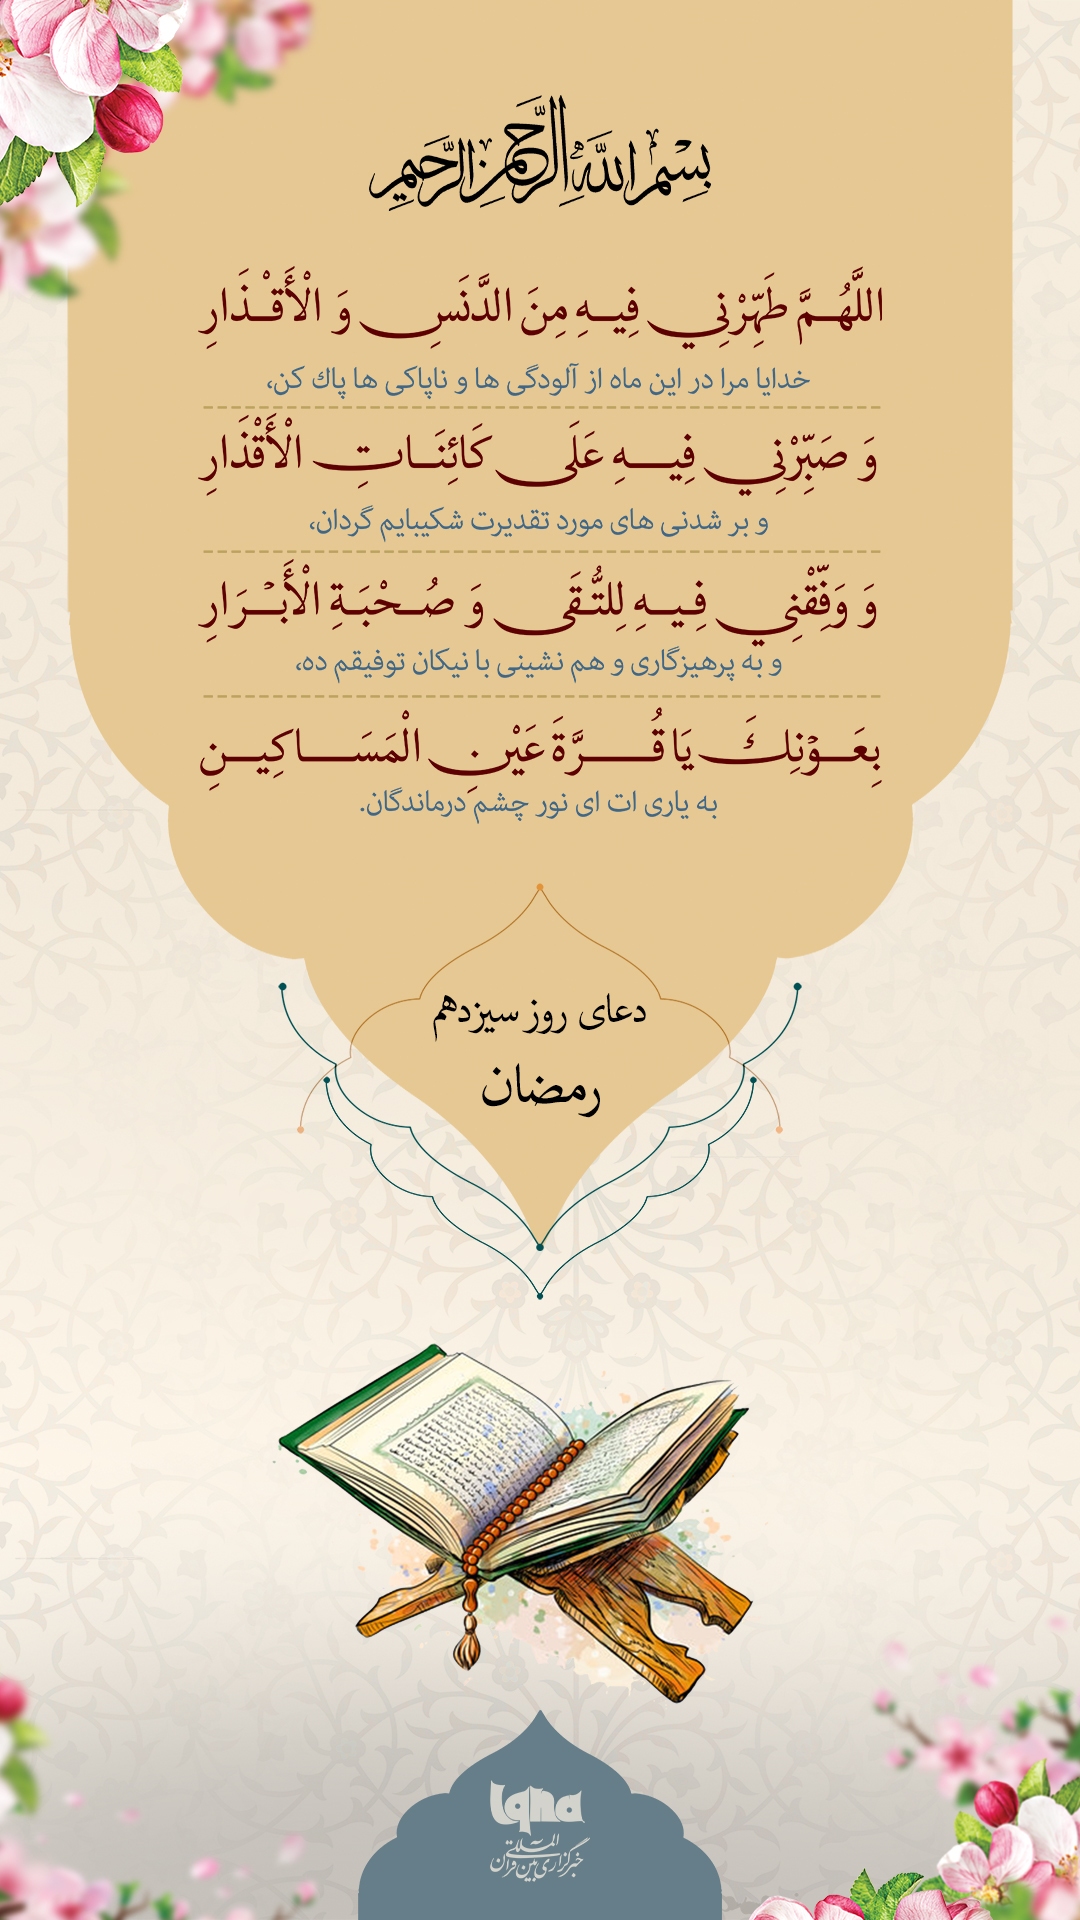 بِسْمِ اللَّهِ الرَّحْمنِ الرَّحِيمِ
اللَّهُمَّ طَهِّرْنِي فِيهِ مِنَ الدَّنَسِ وَ الْأَقْذَارِ
خدایا مرا در این ماه از آلودگی ها و ناپاکی ها پاك کن،
وَ صَبِّرْنِي فِيهِ عَلَى كَائِنَاتِ الْأَقْذَارِ
و بر شدنی های مورد تقدیرت شکیبایم گردان،
وَ وَفِّقْنِي فِيهِ لِلتُّقَى وَ صُحْبَةِ الْأَبْرَارِ
و به پرهیزگاری و هم نشینی با نیکان توفیقم ده،
بِعَوْنِكَ يَا قُرَّةَ عَيْنِ الْمَسَاكِينِ
به یاری ات ای نور چشم درماندگان.
دعای روز سیزدهم
رمضان
Iqna
خبرگزاری بین المللی قرآن